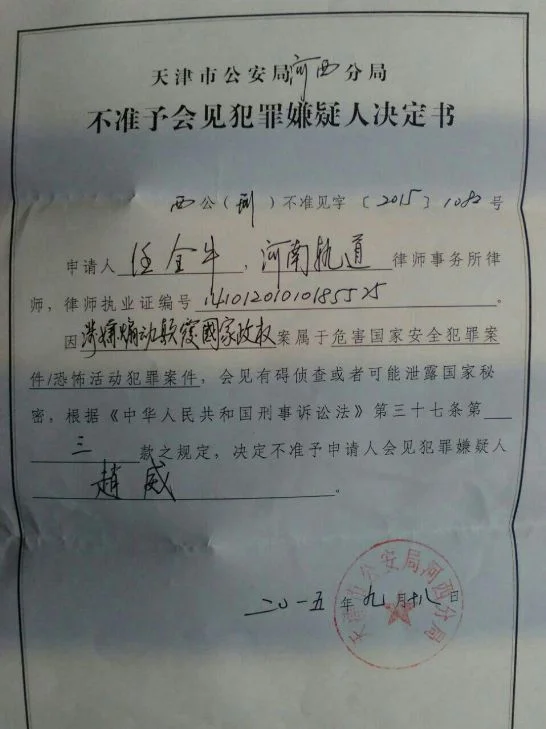 天津市公安局河西分局
不准予会见犯罪嫌疑人决定书
西公（刑）不准见字〔2015〕1082号
申请人任全牛，河南轨道律师事务所律
师，律师执业证编号14101201010185525。
因涉嫌煽动颠覆國家政权案属于危害国家安全犯罪案
件/恐怖活动犯罪案件，会见有碍侦查或者可能泄露国家秘
密，根据《中华人民共和国刑事诉讼法》第三十七条第
三款之规定，决定不准予申请人会见犯罪嫌疑人
趙威。
天津市公安局河西分局
二〇一五年九月十八日